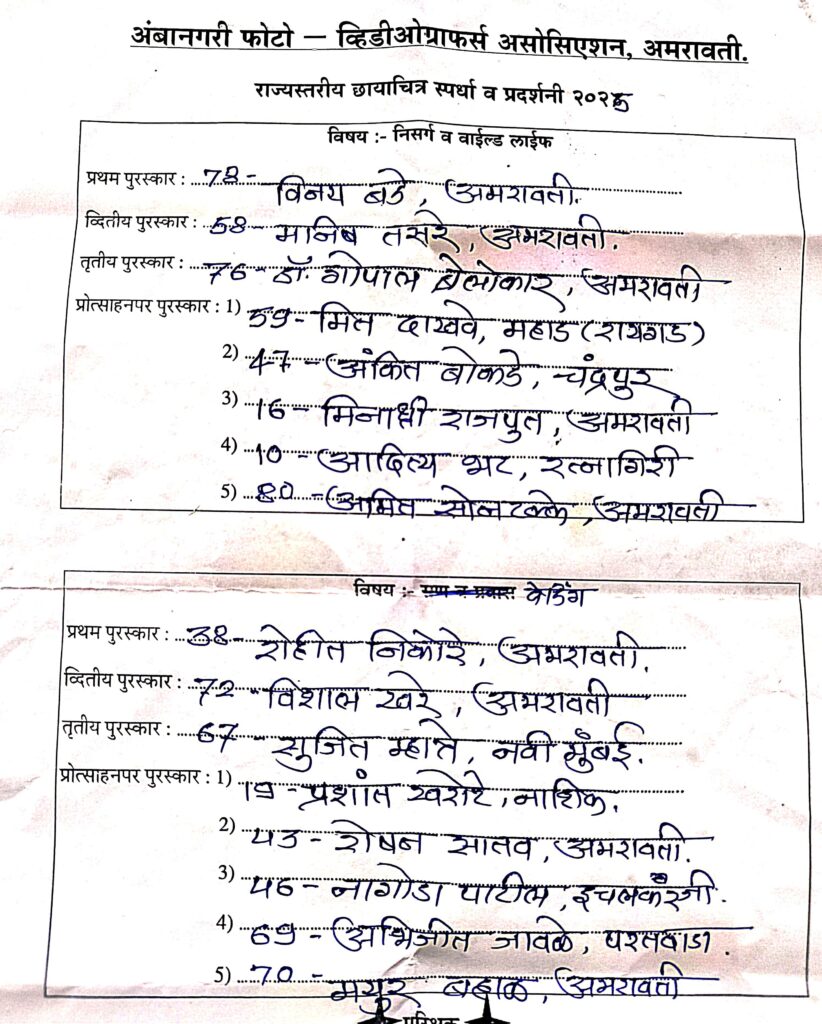 अंबानगरी फोटो – व्हिडीओग्राफर्स असोसिएशन, अमरावती.
राज्यस्तरीय छायाचित्र स्पर्धा व प्रदर्शनी २०२५
विषय :- निसर्ग व वाईल्ड लाईफ
प्रथम पुरस्कार : 78- विनय बडे, अमरावती.
व्दितीय पुरस्कार : 58- मानिष तसरे, अमरावती.
तृतीय पुरस्कार : 76- डॉ. गोपाल बेलोकार, अमरावती
प्रोत्साहनपर पुरस्कार : 1) 59- मित दाखवे, महाड (रायगड)
2) 47- अंकित बोकडे, चंद्रपुर
3) 16- मिनाक्षी राजपुत, अमरावती
4) 10- आदित्य भट, रत्नागिरी
5) 80- अमित सोनटक्के, अमरावती
विषय :- वेडिंग
प्रथम पुरस्कार : 38- रोहीत निकोरे, अमरावती.
व्दितीय पुरस्कार : 72- विशाल खरे, अमरावती
तृतीय पुरस्कार : 67- सुजित म्हात्रे, नवी मुंबई.
प्रोत्साहनपर पुरस्कार : 1) 19- प्रशांत खरोटे, नाशिक.
2) 43- रोषन सातव, अमरावती.
3) 46- नागोडा पाटील, इचलकरंजी.
4) 69- अभिजीत जावळे, परतवाडा.
5) 70- मयुर बहाळ, अमरावती